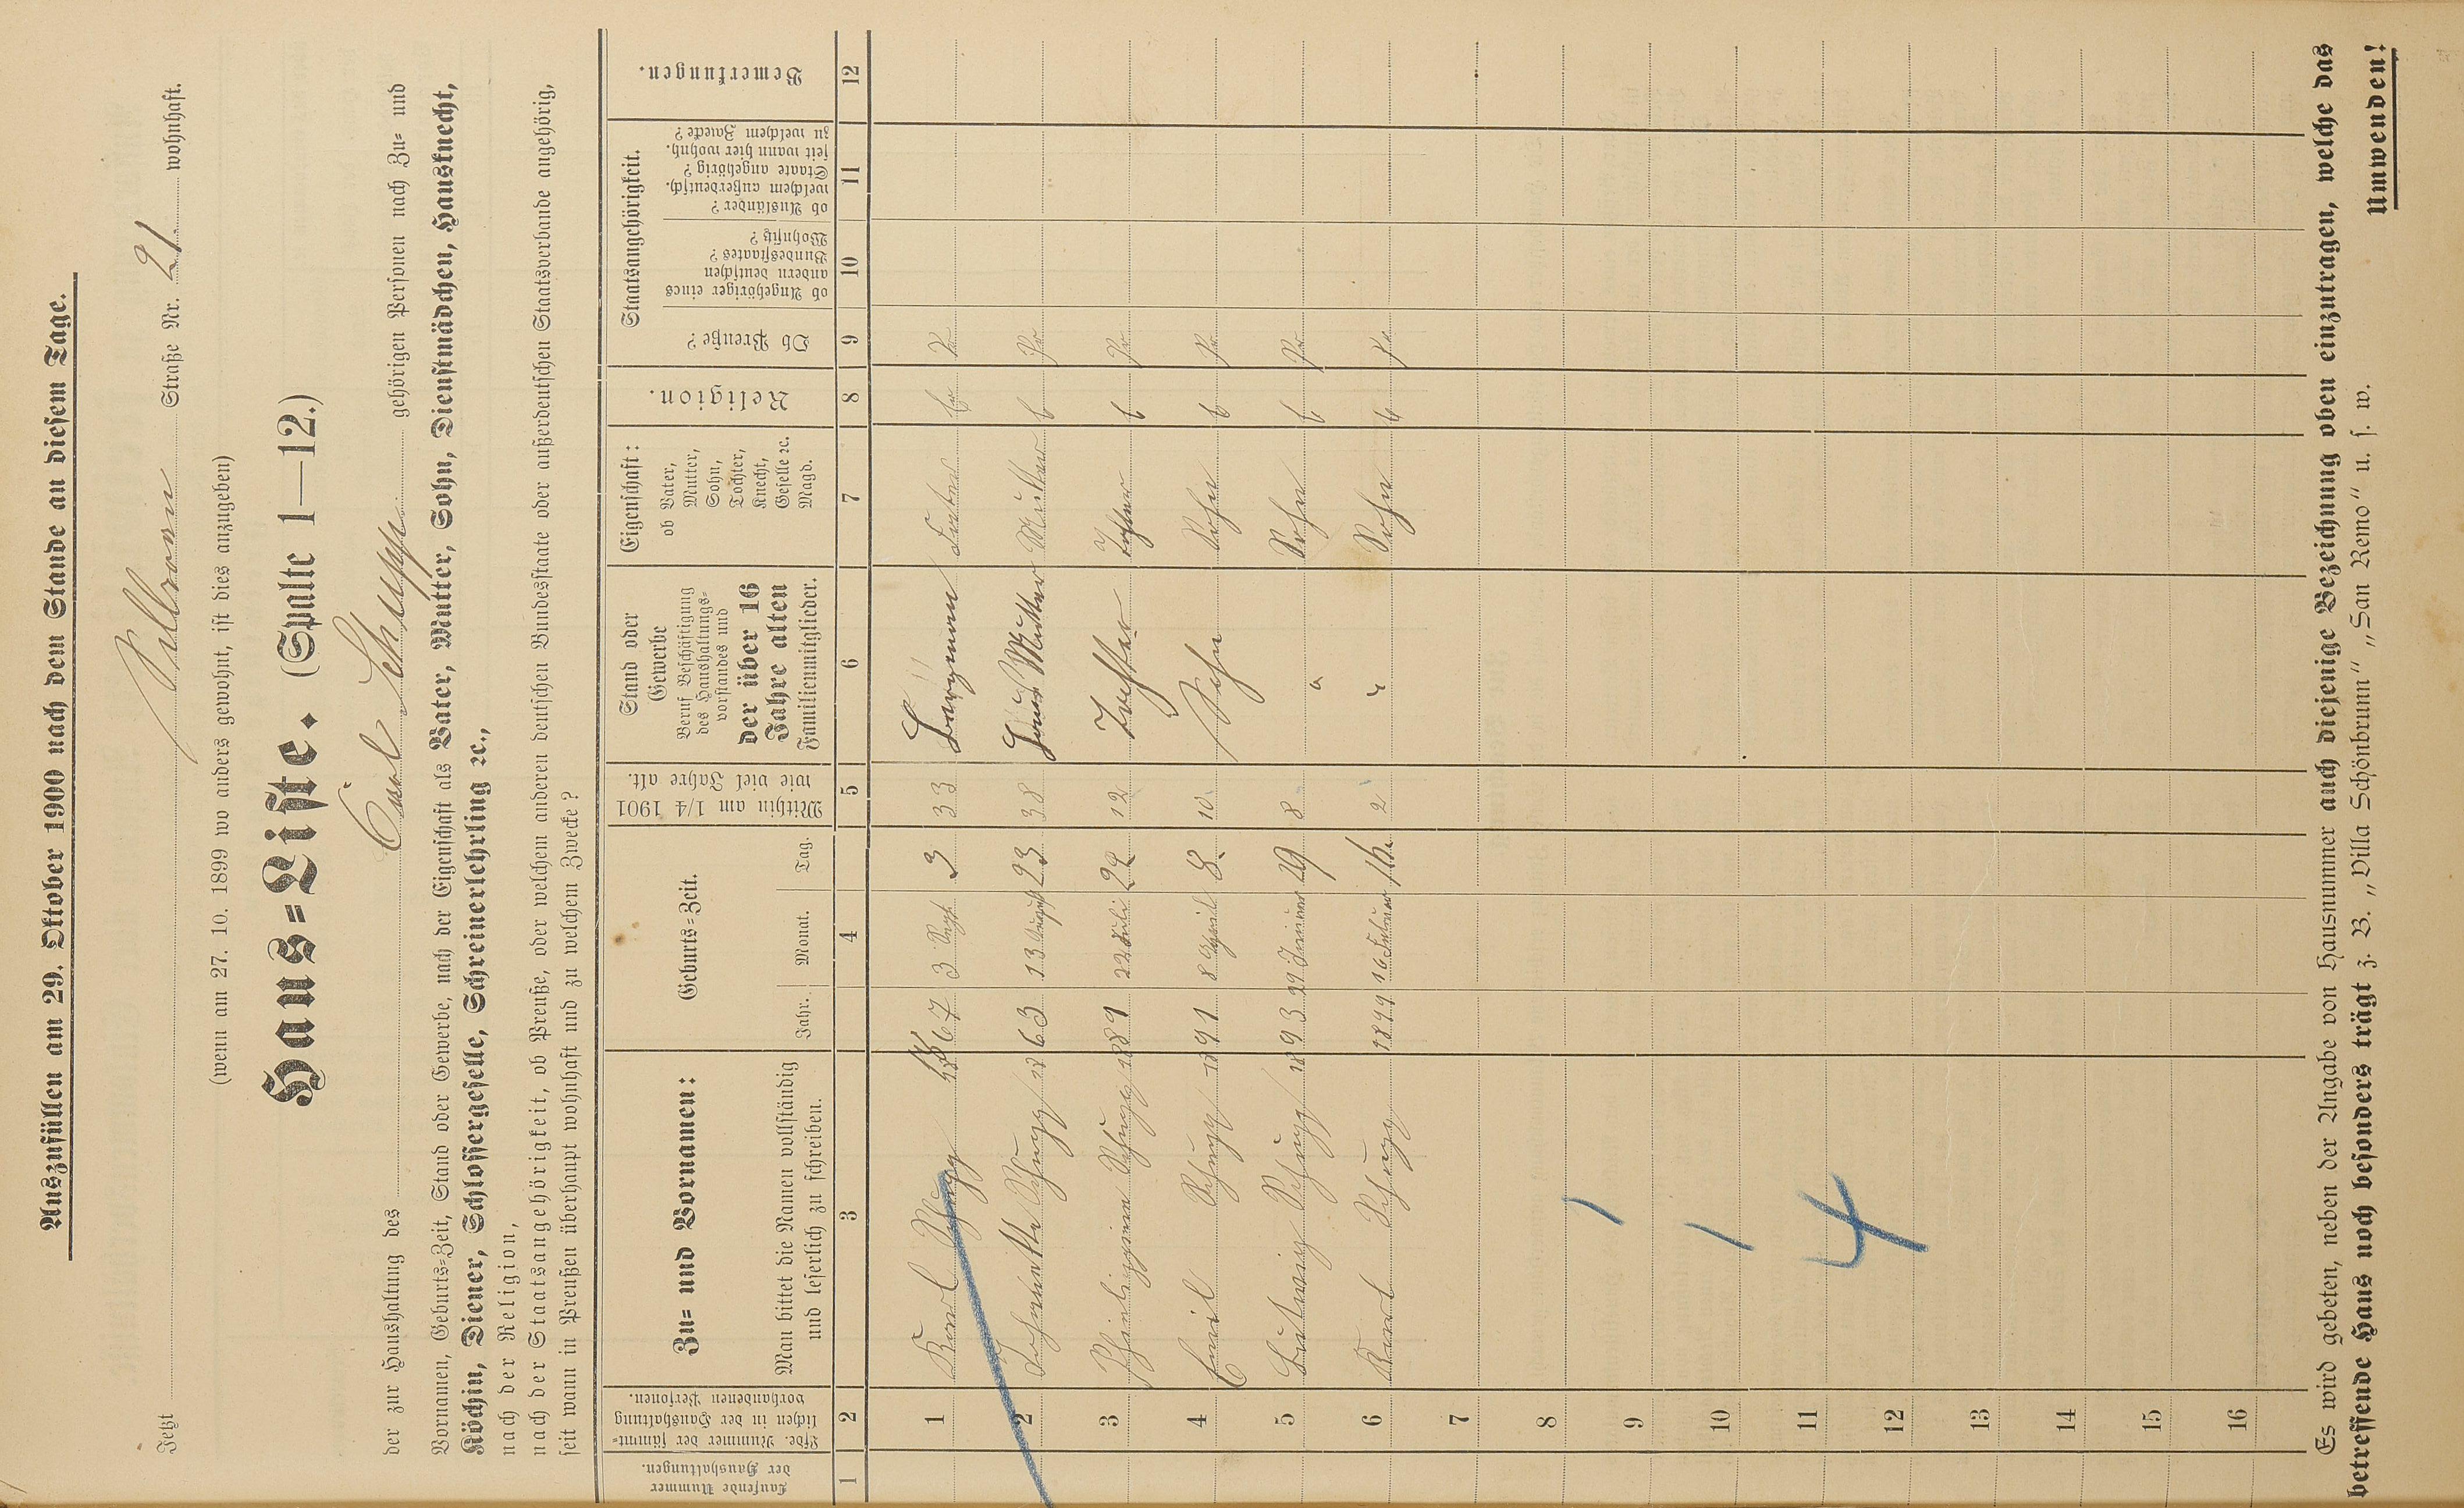 Auszufüllen am 29. Oktober 1900 nach dem Stande an diesem Tage.
Jetzt Straße Nr. 21 wohnhaft.
(wenn am 27. 10. 1899 wo anders gewohnt, ist dies anzugeben)
Haus=Liste. (Spalte 1—12.)
der zur Haushaltung des Carl Schupp gehörigen Personen nach Zu= und
Vornamen, Geburts=Zeit, Stand oder Gewerbe, nach der Eigenschaft als Vater, Mutter, Sohn, Dienstmädchen, Hausknecht,
Köchin, Diener, Schlossergeselle, Schreinerlehrling ꝛc.,
nach der Religion,
nach der Staatsangehörigkeit, ob Preuße, oder welchem anderen deutschen Bundesstaate oder außerdeutschen Staatsverbande angehörig,
seit wann in Preußen überhaupt wohnhaft und zu welchem Zwecke?
Laufende Nummer der Haushaltungen.
Lfde. Nummer der sämmtlichen in der Haushaltung vorhandenen Personen.
Zu= und Vornamen:
Man bittet die Namen vollständig
und leserlich zu schreiben.
Geburts=Zeit.
Jahr. Monat. Tag.
Mithin am 1/4 1901
wie viel Jahre alt.
Stand oder
Gewerbe
Beruf Beschäftigung
des Haushaltungs=
vorstandes und
der über 16
Jahre alten
Familienmitglieder.
Eigenschaft:
ob Vater,
Mutter,
Sohn,
Tochter,
Knecht,
Geselle ꝛc.
Magd.
Religion.
Staatsangehörigkeit.
Ob Preuße?
ob Angehöriger eines
andern deutschen
Bundesstaates
Wohnsitz?
ob Ausländer?
welchem außerdeutsch.
Staate angehörig?
seit wann hier wohnh.
zu welchem Zwecke?
Bemerkungen.
1 2 3 4 5 6 7 8 9 10 11 12
1 Karl Schupp 1867 3 Sept. 3 33 Bergmann Vater
2 Schupp 18 63 13 August 23 38 Mutter Mutter Pr
3 Philippine Schupp 1889 22 Juli 22 12 Tochter Tochter Pr
4 Emil Schupp 1891 8 April 8. 10 Sohn Sohn Pr
5 Ludwig Schupp 1893 29 Januar 29 8 " Sohn Pr
6 Karl Schupp 1899 16 Februar 16. 2 " Sohn Pr
7
8
9
10
11 4
12
13
14
15
16
Es wird gebeten, neben der Angabe von Hausnummer auch diejenige Bezeichnung oben einzutragen, welche das
betreffende Haus noch besonders trägt z. B. „Villa Schönbrunn" „San Remo" u. s. w.
Umwenden!